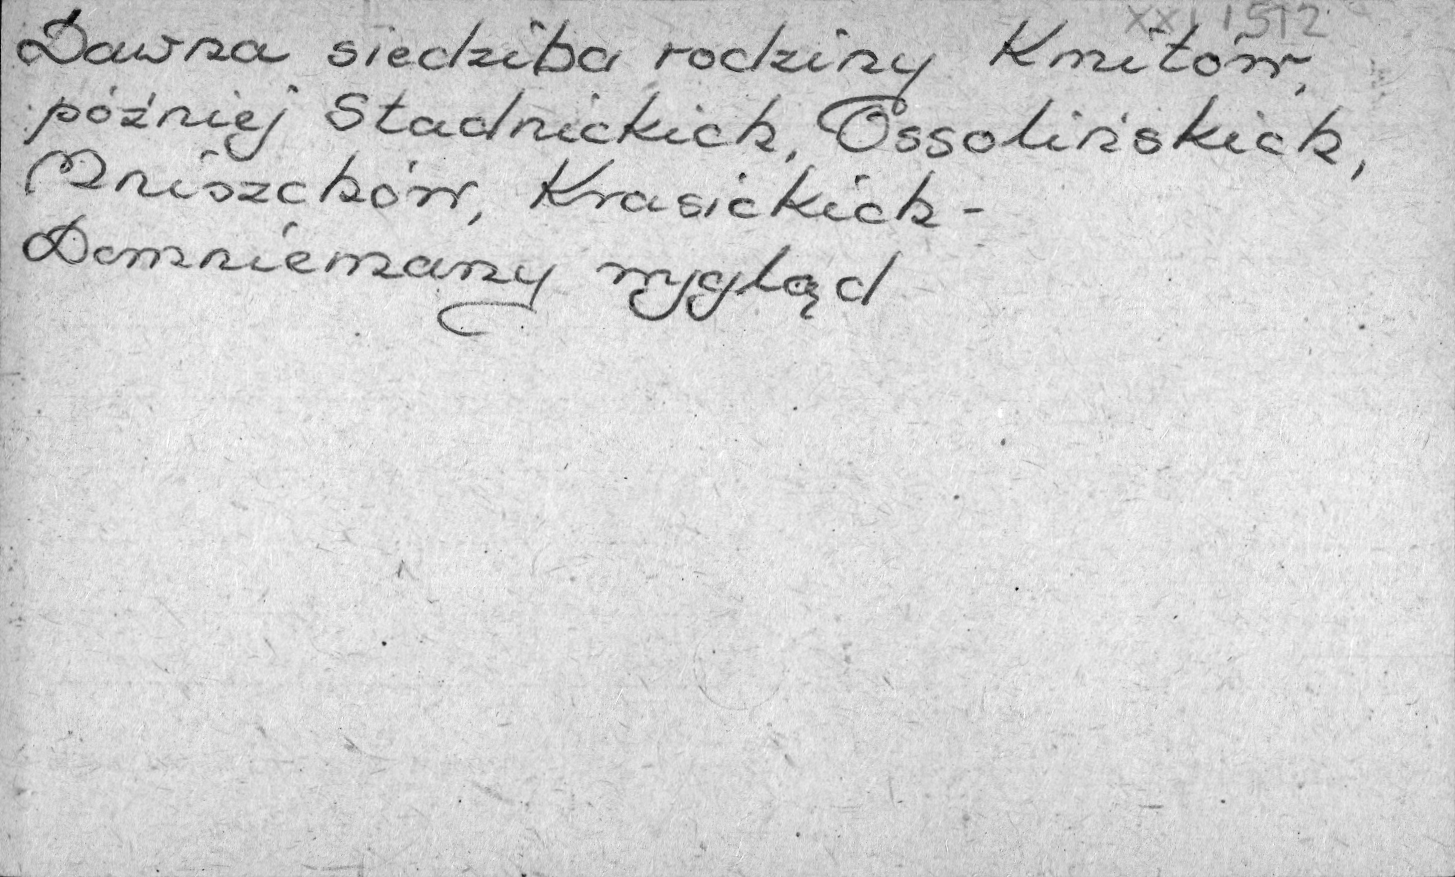 XXI 1512
Dawna siedziba rodziny Kmitów,
później Stadnickich, Ossolińskich,
Mniszchów, Krasickich -
Domniemany wygląd